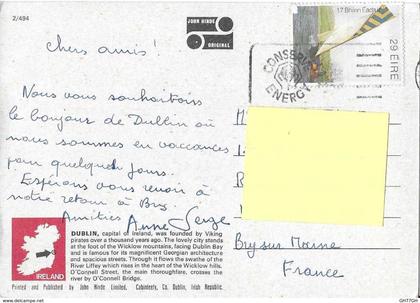 2/494
JOHN HINDE
ORIGINAL
17 Bhlian
29 EIRE
CONSERVE
ENERGY
chers amis!
Nous vous souhaitons
le bonjour de Dublin où
nous sommes en vaccances
pour quelques jours.
Espérons vous revoir à
notre retour à Bry.
Amitiés
Anne Serge
Bry sur Marne
France
IRELAND
DUBLIN, capital of Ireland, was founded by Viking
pirates over a thousand years ago. The lovely city stands
at the foot of the Wicklow mountains, facing Dublin Bay
and is famous for its magnificent Georgian architecture
and spacious streets. Through it flows the swathe of the
River Liffey which rises in the heart of the Wicklow hills.
O'Connell Street, the main thoroughfare, crosses the
river by O'Connell Bridge.
Printed and Published by John Hinde Limited, Cabinteely, Co. Dublin, Irish Republic.